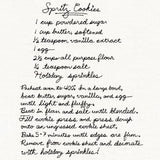 Spritz Cookies
1 cup powdered sugar
1 cup butter softened
½ teaspoon vanilla extract
1 egg
2½ cups all purpose flour
½ teaspoon salt
Holiday sprinkles
Preheat oven to 400. In a large bowl,
beat butter, sugar, vanilla, and egg
until light and fluffy.
Beat in flour and salt until blended.
Fill cookie press and press dough
onto an ungreased cookie sheet.
Bake 5-7 minutes until edges are firm.
Remove from cookie sheet and decorate
with holiday sprinkles!